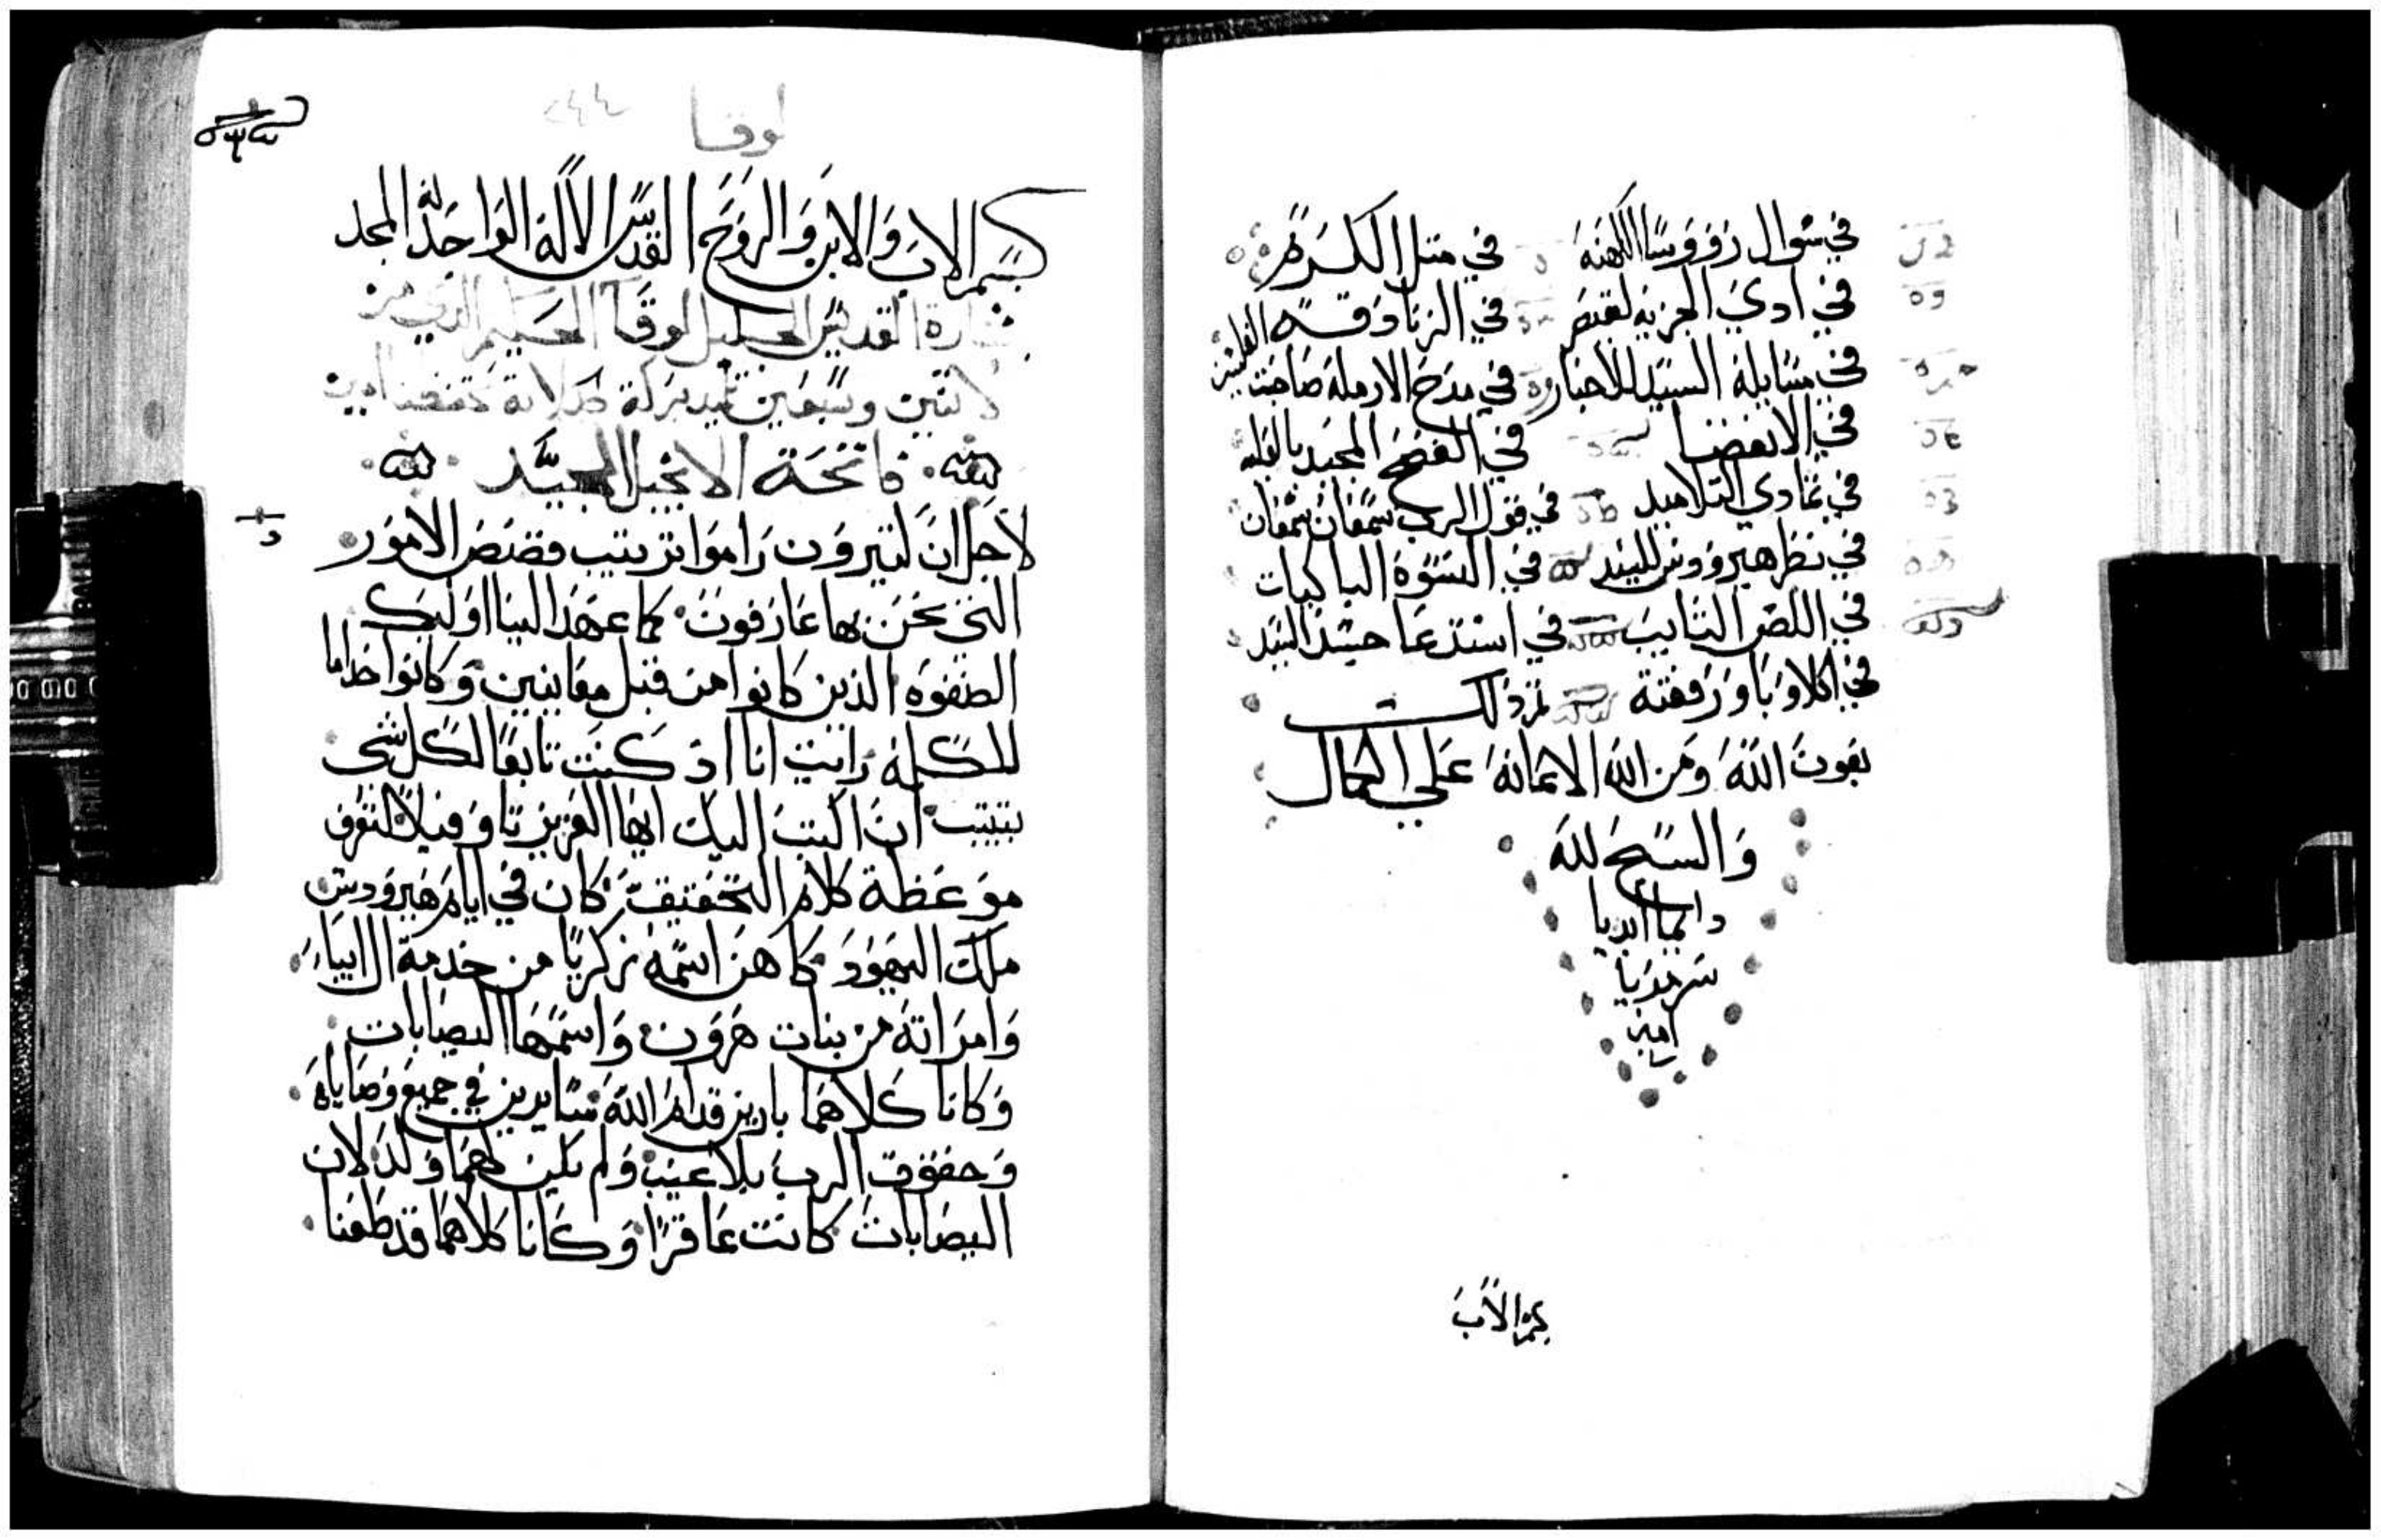 في سوال رووسا الكهنه في متل الكرم
في ادي الجزيه لقيصر في الزنادقه
في مسايلة السيد للاحبار في مدح الارمله صاحبت
في الانفضا في الفصح المجيد
في تمادي التلاميد في قول الرب سمعان سمعان
في نظر هيرودس للسيد في النسوه الباكيات
في اللص التايب في استدعا جسد السيد
في اكلاوبا ورفقته تم ذلك
بعون الله ومن الله الاعانه علي الكمال
والسبح لله
دايما ابديا
سرمديا
امين
بسم الاب
لوقا
بسم الاب والابن والروح القدس الاله الواحد له المجد
بشارة القديس الجليل لوقا
وسبعين تلميد بركة صلاته تحفضنا امين
فاتحة الانجيل المجيد
لاجل ان كتيرون راموا ترتيب قصص الامور
التي نحن بها عارفون كما عهد الينا اوليك
الصفوه الذين كانوا من قبل معاينين وكانوا خداما
للكلمه رايت انا اد كنت تابعا لكل شي
بتتبت ان اكتب اليك ايها العزيز تاوفيلا لتعرف
موعظة كلام التحقيق كان في ايام هيرودس
ملك اليهود كاهن اسمه زكريا من خدمة ال ابياء
وامراته من بنات هرون واسمها اليصابات
وكانا كلاهما بارين قدام الله سايرين في جميع وصاياه
وحقوق الرب بلا عيب ولم يكن لهما ولد لان
اليصابات كانت عاقرا وكانا كلاهما قد طعنا